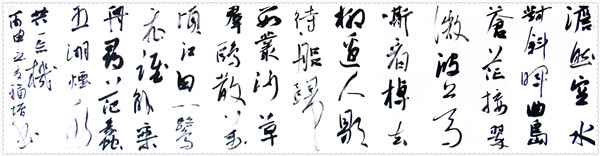 澹然空水
對斜暉曲島
蒼茫接翠
微波上馬
嘶看棹去
柳邊人歇
待船歸
數叢沙草
羣鷗散萬
頃江田一鷺
飛誰解乘
舟尋范蠡
五湖煙水
獨忘機
丙申立冬